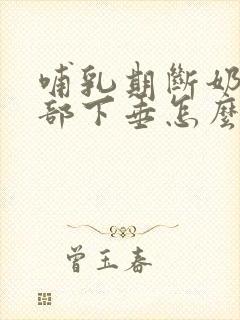 哺乳期斷奶
部下垂怎麼
曾玉春